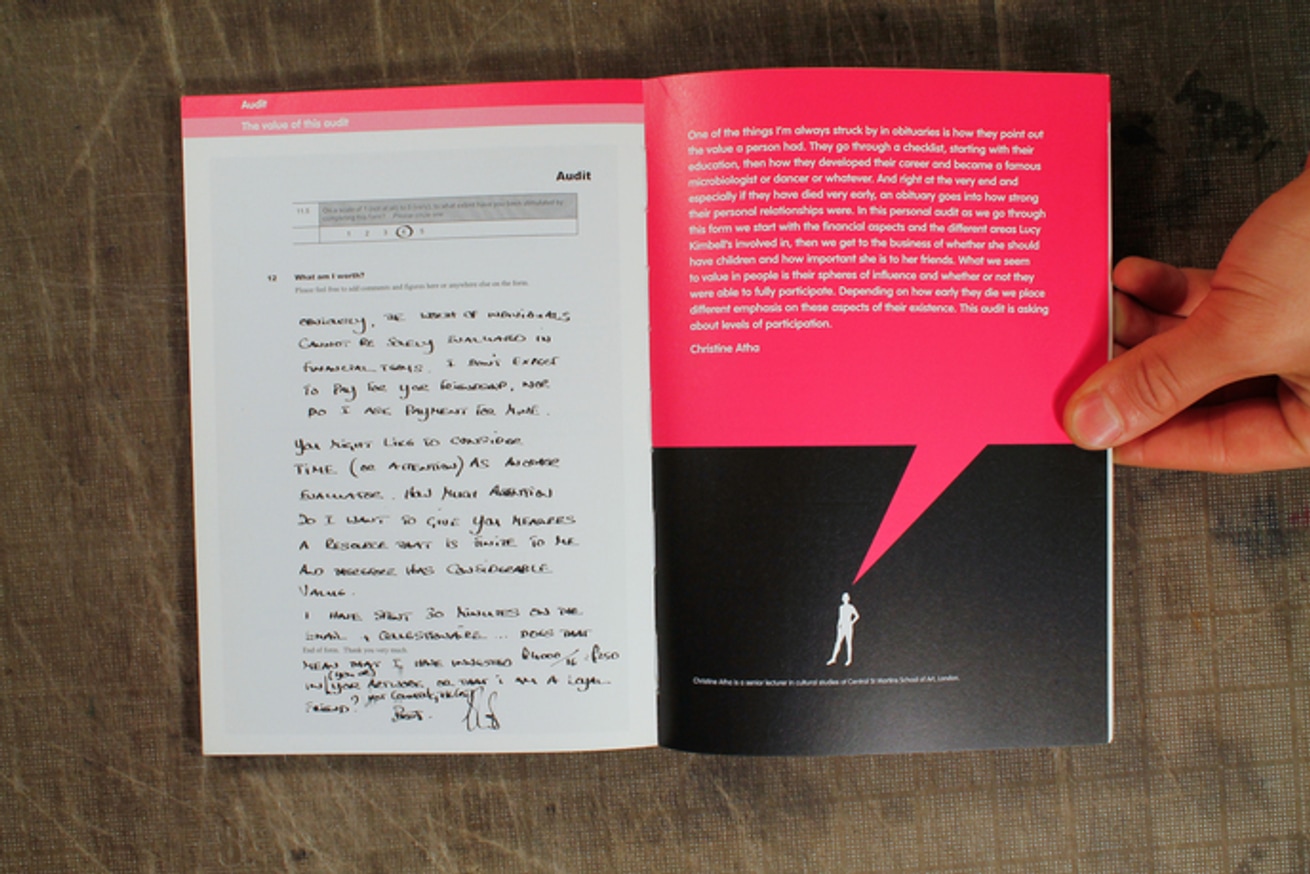 Audit
The value of this audit
Audit
11.5 On a scale of 1 (not at all) to 5 (very), to what extent have you been stimulated by
completing this form? Please circle one
1 2 3 4 5
12 What am I worth?
Please feel free to add comments and figures here or anywhere else on the form.
OBVIOUSLY, THE WORTH OF INDIVIDUALS
CANNOT BE SOLELY EVALUATED IN
FINANCIAL TERMS. I DON'T EXPECT
TO PAY FOR YOUR FRIENDSHIP, NOR
DO I ASK PAYMENT FOR MINE.
YOU MIGHT LIKE TO CONSIDER
TIME (OR ATTENTION) AS ANOTHER
EVALUATOR. HOW MUCH ATTENTION
DO I WANT TO GIVE YOU MEASURES
A RESOURCE THAT IS FINITE TO ME
AND THEREFORE HAS CONSIDERABLE
VALUE.
I HAVE SPENT 30 MINUTES ON THE
EMAIL + QUESTIONAIRE ... DOES THAT
End of form. Thank you very much.
MEAN THAT I HAVE INVESTED £4000/16 : £250
IN YOUR ARTWORK, OR THAT I AM A LOYAL
FRIEND?
One of the things I'm always struck by in obituaries is how they point out
the value a person had. They go through a checklist, starting with their
education, then how they developed their career and became a famous
microbiologist or dancer or whatever. And right at the very end and
especially if they have died very early, an obituary goes into how strong
their personal relationships were. In this personal audit as we go through
this form we start with the financial aspects and the different areas Lucy
Kimbell's involved in, then we get to the business of whether she should
have children and how important she is to her friends. What we seem
to value in people is their spheres of influence and whether or not they
were able to fully participate. Depending on how early they die we place
different emphasis on these aspects of their existence. This audit is asking
about levels of participation.
Christine Atha
Christine Atha is a senior lecturer in cultural studies at Central St Martins School of Art, London.